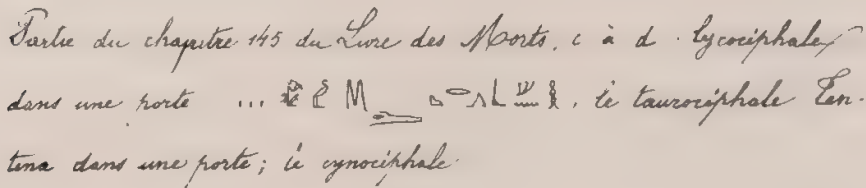 Partie du chapitre 145 du Livre des Morts, c à d. lycocéphale
dans une porte ... , le taurocéphale Ten-
tena dans une porte; le cynocéphale.